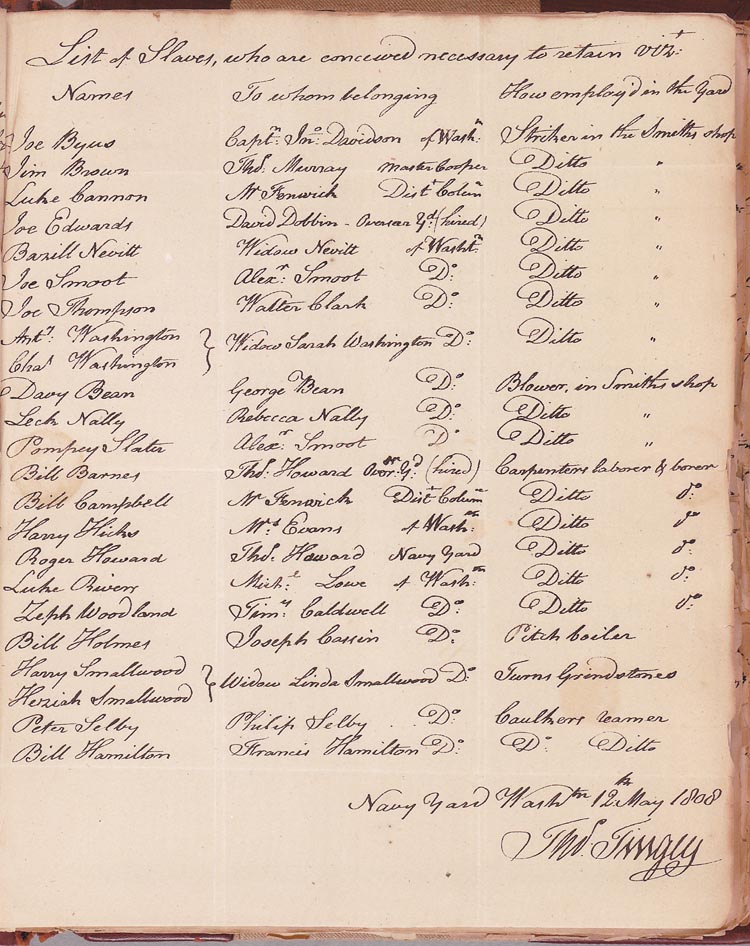 List of Slaves, who are conceived necessary to retain vizt:
Names To whom belonging How employ'd in the Yard
Joe Byus Captn. Jno. Davidson of Washn: Striker in the Smiths shop
Jim Brown Thos. Murray Master Cooper Ditto "
Luke Cannon Mr Fenwick Dist Colum Ditto "
Joe Edwards David Dobbin - Overseer Yd (hired) Ditto "
Bazill Nevitt Widow Nevitt of Washtn Ditto "
Joe Smoot Alexr: Smoot Do: Ditto "
Joe Thompson Walter Clark Do: Ditto "
Anty: Washington } Widow Sarah Washington Do: Ditto "
Chas Washington
Davy Bean George Bean Do: Blower, in Smiths shop
Leck Nally Rebecca Nally Do: Ditto "
Pompey Slater Alexr: Smoot Do: Ditto "
Bill Barnes Thos. Howard Overr: Yd (hired) Carpenters laborer & borer
Bill Campbell Mr Fenwick Dist Colum Ditto do:
Harry Hicks Mrs Evans of Washn: Ditto do
Roger Howard Thos. Howard Navy Yard Ditto do:
Luke Rivers Michl: Lowe of Washn: Ditto do:
Zeph Woodland Timy: Caldwell Do: Ditto do:
Bill Holmes Joseph Cassin Do: Pitch boiler
Harry Smallwood } Widow Linda Smallwood Do: Turns Grindstones
Heziah Smallwood
Peter Selby Philip Selby Do: Caulkers reamer
Bill Hamilton Francis Hamilton Do: Do: Ditto
Navy Yard Washtn 12th May 1808
Thos. Tingey